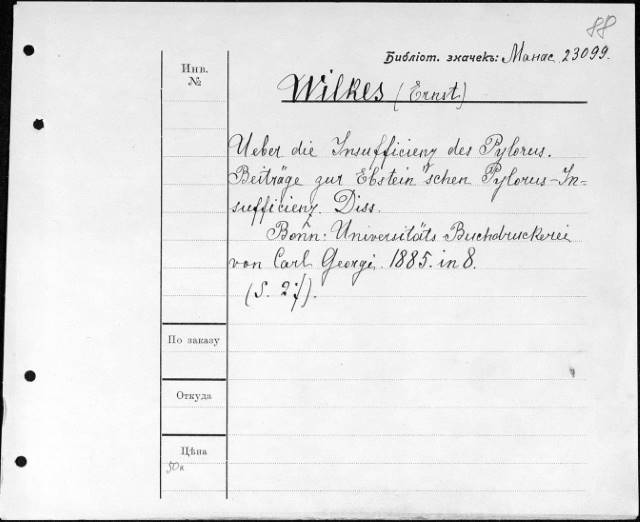 88
Библіот. значекъ: Манас. 23099.
Инв.
№
Wilkes (Ernst)
Ueber die Insufficienz des Pylorus.
Beiträge zur Ebstein'schen Pylorus-In=
sufficienz. Diss.
Bonn: Universitäts Buchdruckerei
von Carl Georgi. 1885. in 8.
(S. 27).
По заказу
Откуда
Цѣна
50к